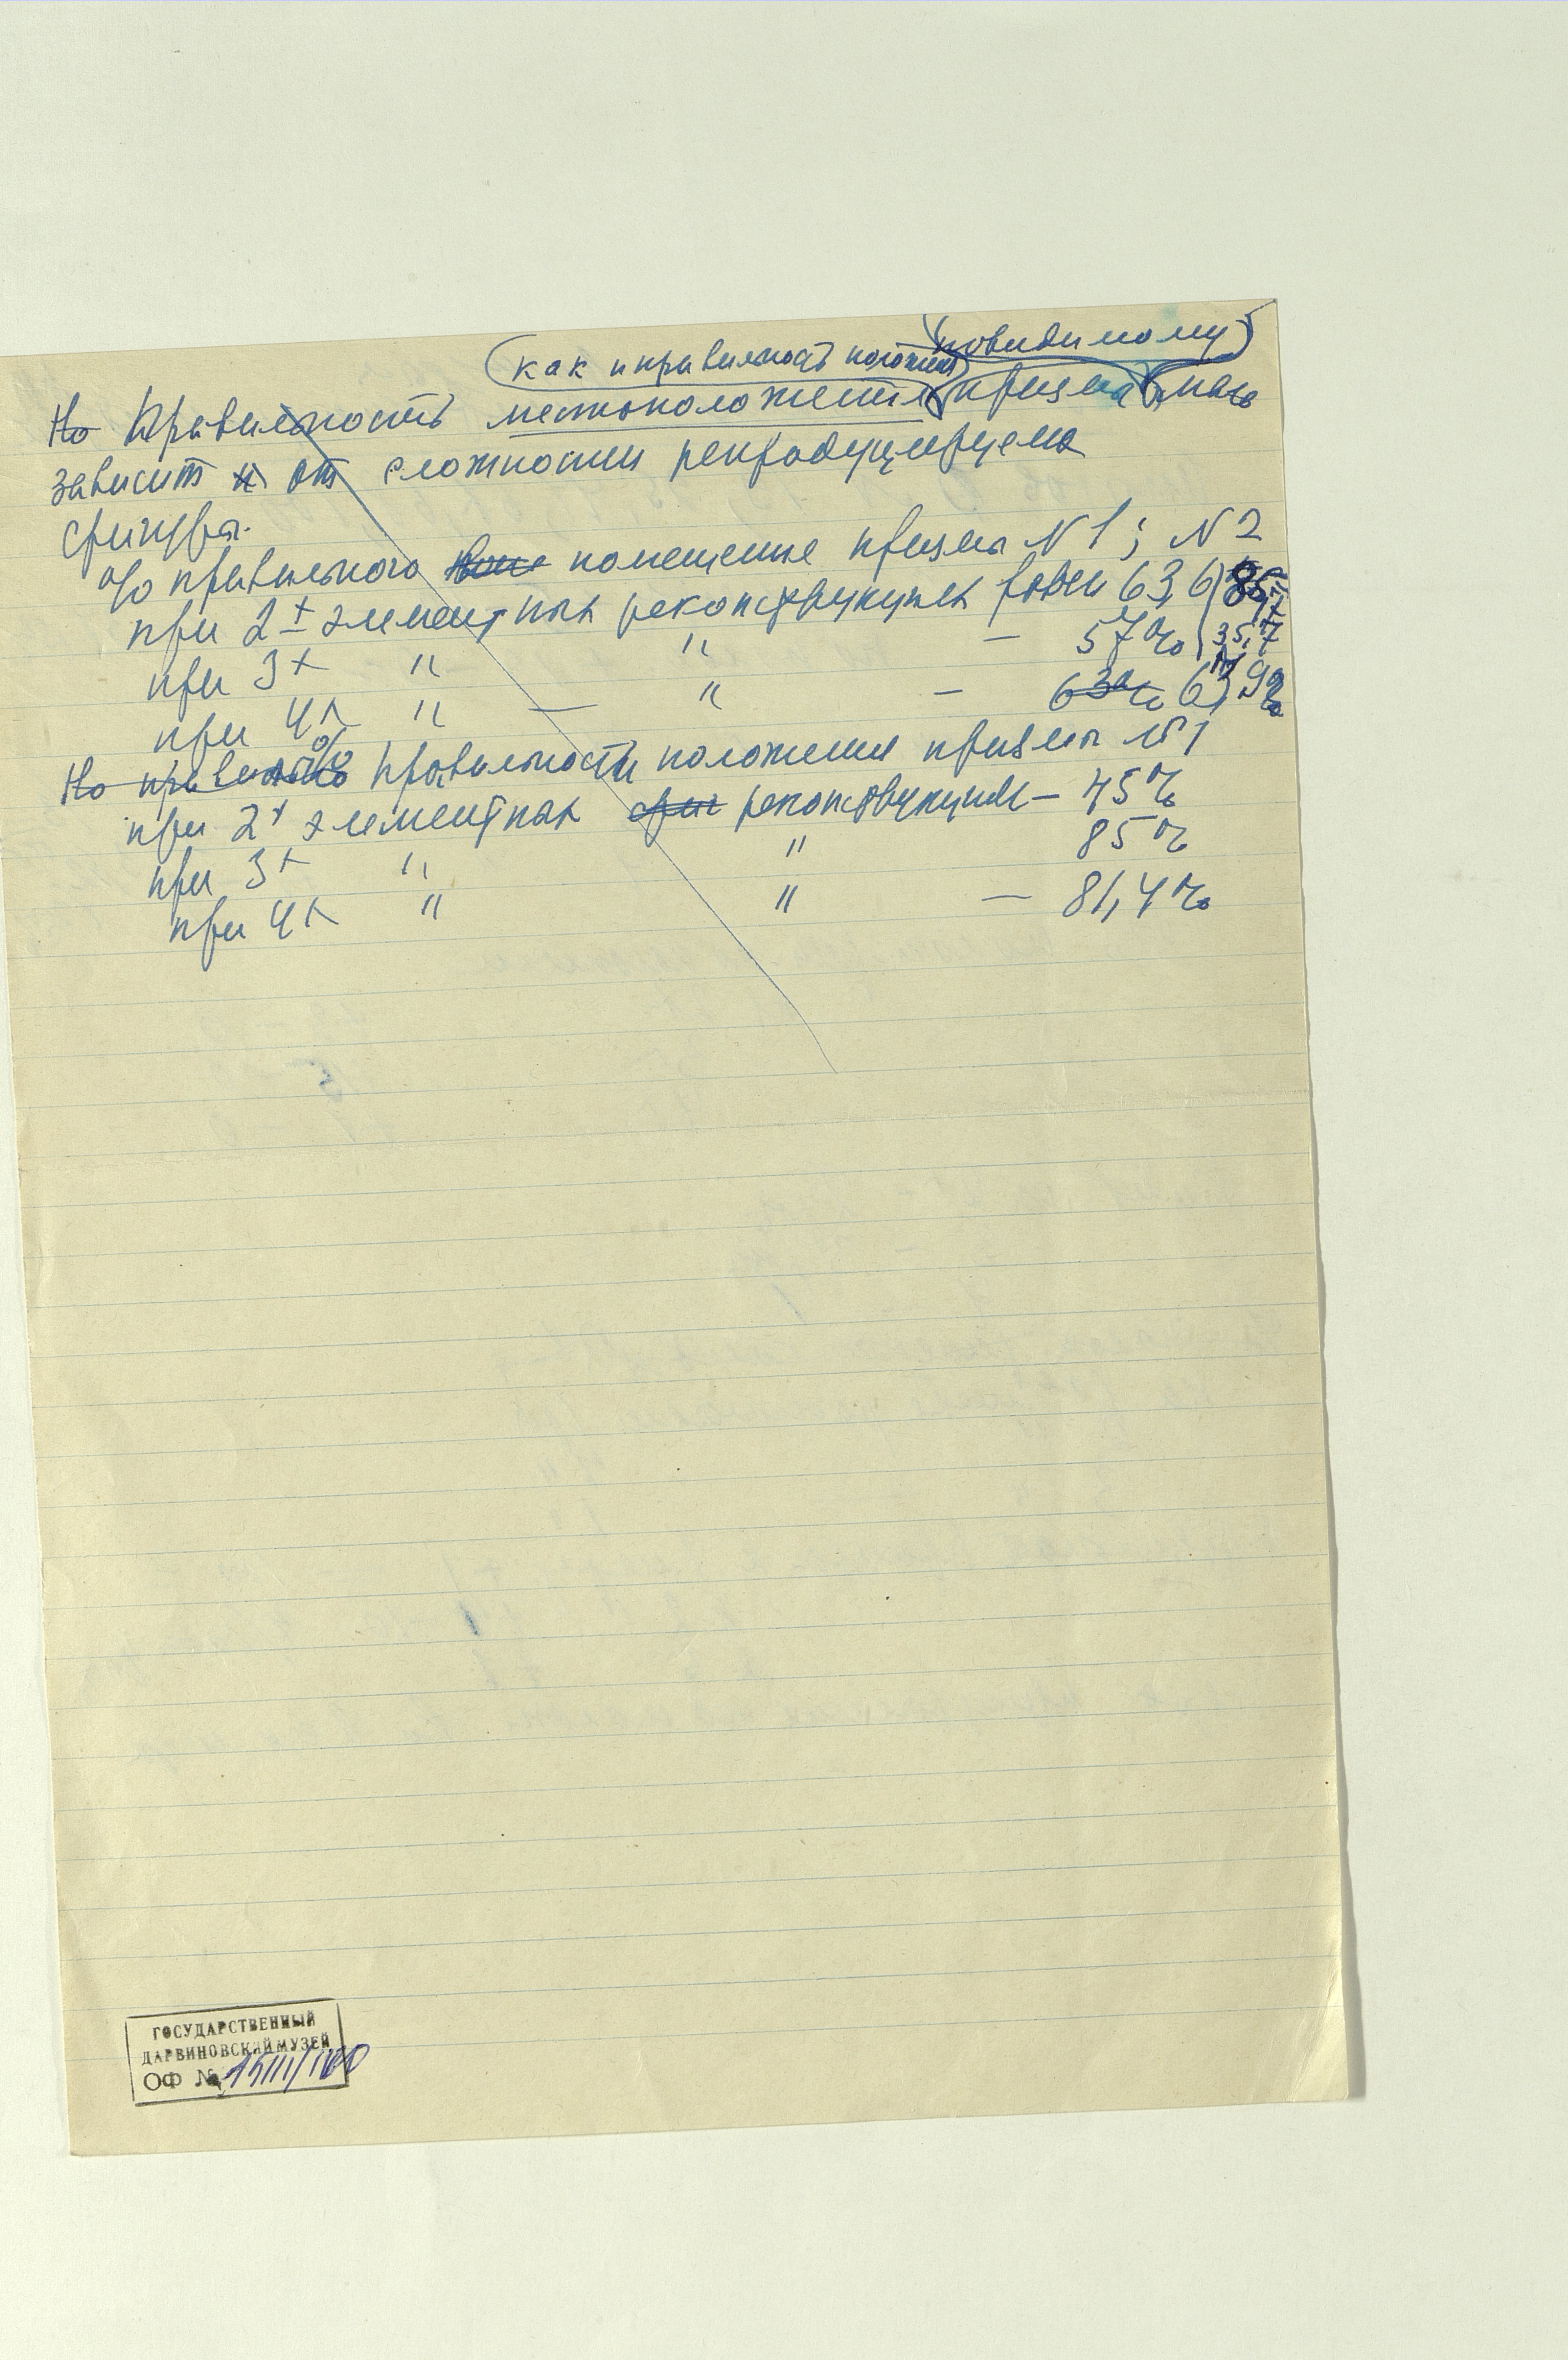 (как и правильность положения) (повидимому)
Но Правильность местоположения призмы мало
зависит от сложности репродуцируема
фигуры.
% правильного помещение призмы N 1; N 2
при 2х элементных реконструкциях равен 63,6
при 3х " " — 57% 35,7
при 4х " — " — 63% 63,9%
Но правильно % правильности положения призмы №1
при 2х элементных фиг реконструкциях — 45%
при 3х " " 85%
при 4х " " — 81,4%
ГОСУДАРСТВЕННЫЙ
ДАРВИНОВСКИЙ МУЗЕЙ
ОФ №